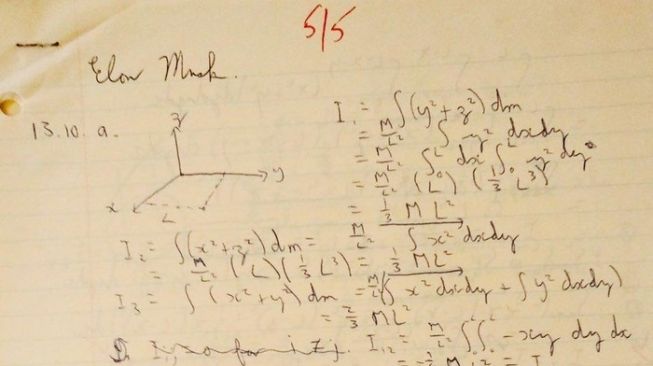 5/5
Elon Musk.
13.10. a.
z
y
x
L
I₁ = ∫(y²+z²) dm
= M/L² ∫ y² dxdy
= M/L² ∫₀ᴸ dx ∫₀ᴸ y² dy
= M/L² (L) (1/3 L³)
= 1/3 ML²
I₂ = ∫(x²+z²) dm = M/L² ∫ x² dxdy
= M/L² (L)(1/3 L³) = 1/3 ML²
I₃ = ∫(x²+y²) dm = M/L² (∫ x² dxdy + ∫ y² dxdy)
= 2/3 ML²
I₁₂ = M/L² ∫₀ᴸ∫₀ᴸ -xy dy dx